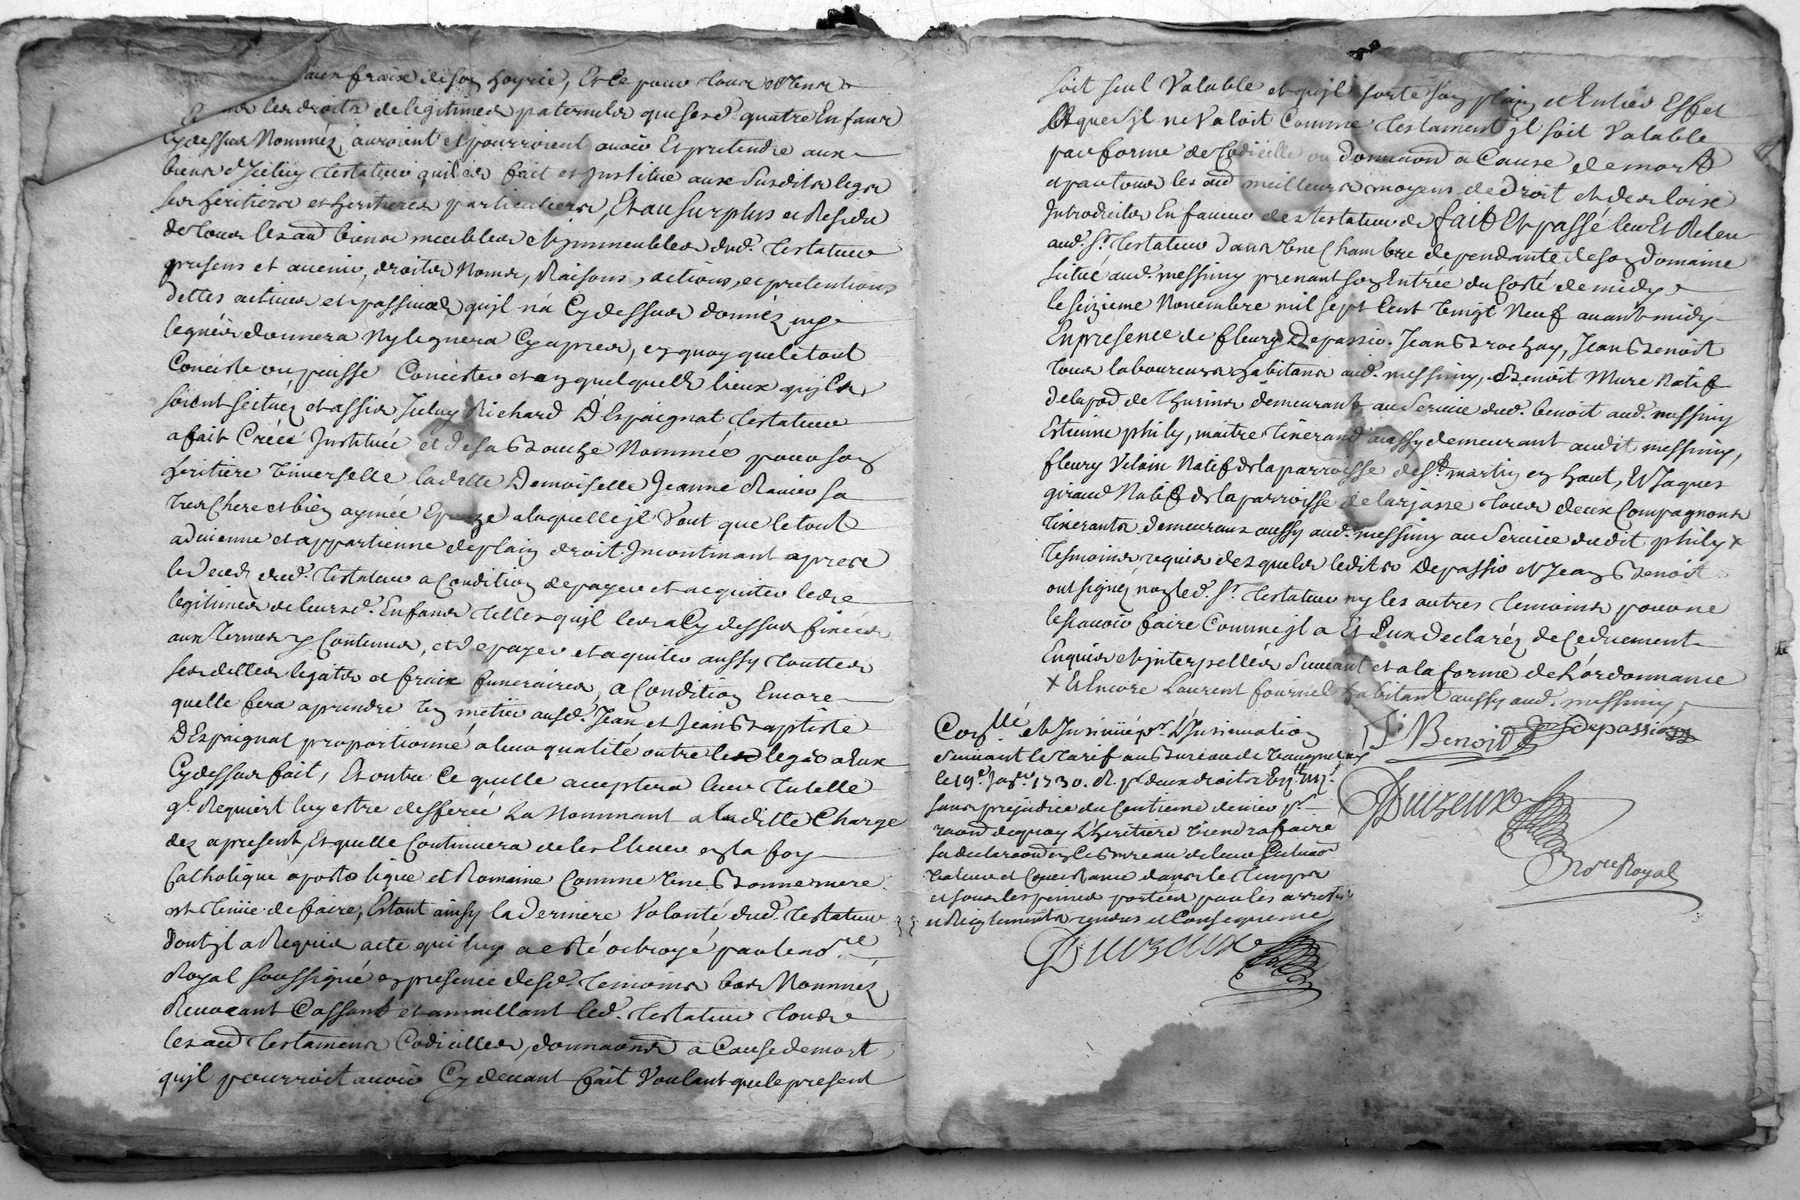 aux fraix de son hoyrie, Et ce pour tous
les droits de legitimes paternels que sesd. quatre Enfans
Cydessus Nommés, auroient et pourroient avoir Et pretendre aux
biens d'Iceluy testateur quil a fait et Institue aux Susdits legs
ses heritiers et heritieres particuliers, Et au Surplus et Residu
de tous les aud biens meubles et immeubles dud. testateur
presens et avenir, droits Noms, Raisons, actions, et pretentions
dettes actives et passives qujl n'a Cy dessus donnéz ny
legués donnera Ny leguera Cy apres, en quoy que le tout
Conciste ou puisse Concister et en quelques lieux quils
soient scitués et assis Iceluy Richard D'Espaignat testateur
a fait Créé Institué et de sa Bouche Nommé pour son
heritiere Universelle laditte Demoiselle Jeanne Ravier sa
tres Chere et bien aymée Epouze a laquelle jl Veut que le tout
advienne et appartienne de plain droit Incontinant apres
le deceds dud. testateur a Condition de payer et acquiter les
legitimes de leursd. Enfans telles quil les a Cy dessus fixées
aux termes y Contenus, et de payer et aquiter aussy touttes
ses dettes legats et fraix funeraires, a Condition Encore
quelle fera aprendre Un metier ausd. Jean et Jean Baptiste
D'Espaignat proportionné a leur qualité outre les legs a Eux
Cydessus fait, Et outre Ce quelle acceptera leur tutelle
ql. Requiert luy estre defferée La Nommant a laditte Charge
dez apresent, Et quelle Continuera de les Elever en la foy
Catholique apostolique et Romaine Comme Une Bonne mere
est tenüe de faire, Estant ainsy la Derniere Volonté dud. testateur
Dont jl a Requis acte qui luy a esté octroyé par le nore
Royal soussigné en presence desd. temoins bas Nommés
Revocant Cassant et annullant led. testateur tous
les aud testamens Codicilles, donnaons a Cause de mort
qujl pourroit avoir Cy devant fait Voulant que le present
soit seul Valable et qujl sorte son plain et Entier Effet
Et que sjl ne Valoit Comme testament jl soit Valable
par forme de Codicille ou Donnaon a Cause de mort
et par tous les aud meilleurs moyens de Droit et des loix
Introduites En faveur des testateurs fait Et passé leu Et Releu
aud. Sr. testateur Dans Une Chambre dependante de son Domaine
scitué aud. messimy prenant son Entrée du Costé de midy
le seizieme Novembre mil sept Cent Vingt Neuf avant midy
En presence de fleury Depassio. Jean Brochay, Jean Benoit
tous laboureurs habitans aud. messimy, Benoit Mure Natif
de la pod de thurins demeurant au Service dud. benoit aud. messimy
Estienne phily, maitre tinerand aussy demeurant audit messimy,
fleury Vilain Natif de la parroisse de St. martin en haut, Et Jaques
giraud Natif de la parroisse de larjasse tous deux Compagnons
tinerants demeurans aussy aud. messimy au Service dudit phily x
tesmoins requis desquels ledits Depassio et Jean Benoit
ont signés non led. Sr. testateur ny les autres temoins pour ne
le scavoir faire Comme jl a Et Eux Declarés de Ce duement
Enquis et interpellés Suivant et a la forme de L'ordonnance
x Et Encore Laurent fournel habitant aussy aud. messimy
J. Benoit Depassio
Conllé et Insinüé pr. L'Insinuation
Suivant le tarif au Bureau de Vaugneray
le 19e. 1730. R
sans prejudice du Centieme denier pr.
raon dequoy L'heritiere Viendra faire
sa declaraon en Ce Bureau de leur
Valeur et Concistance dans le temps
et sous les peines portées par les arrests
et Reiglements rendus et Consequence
Duizeux
Duizeux
Nore Royal